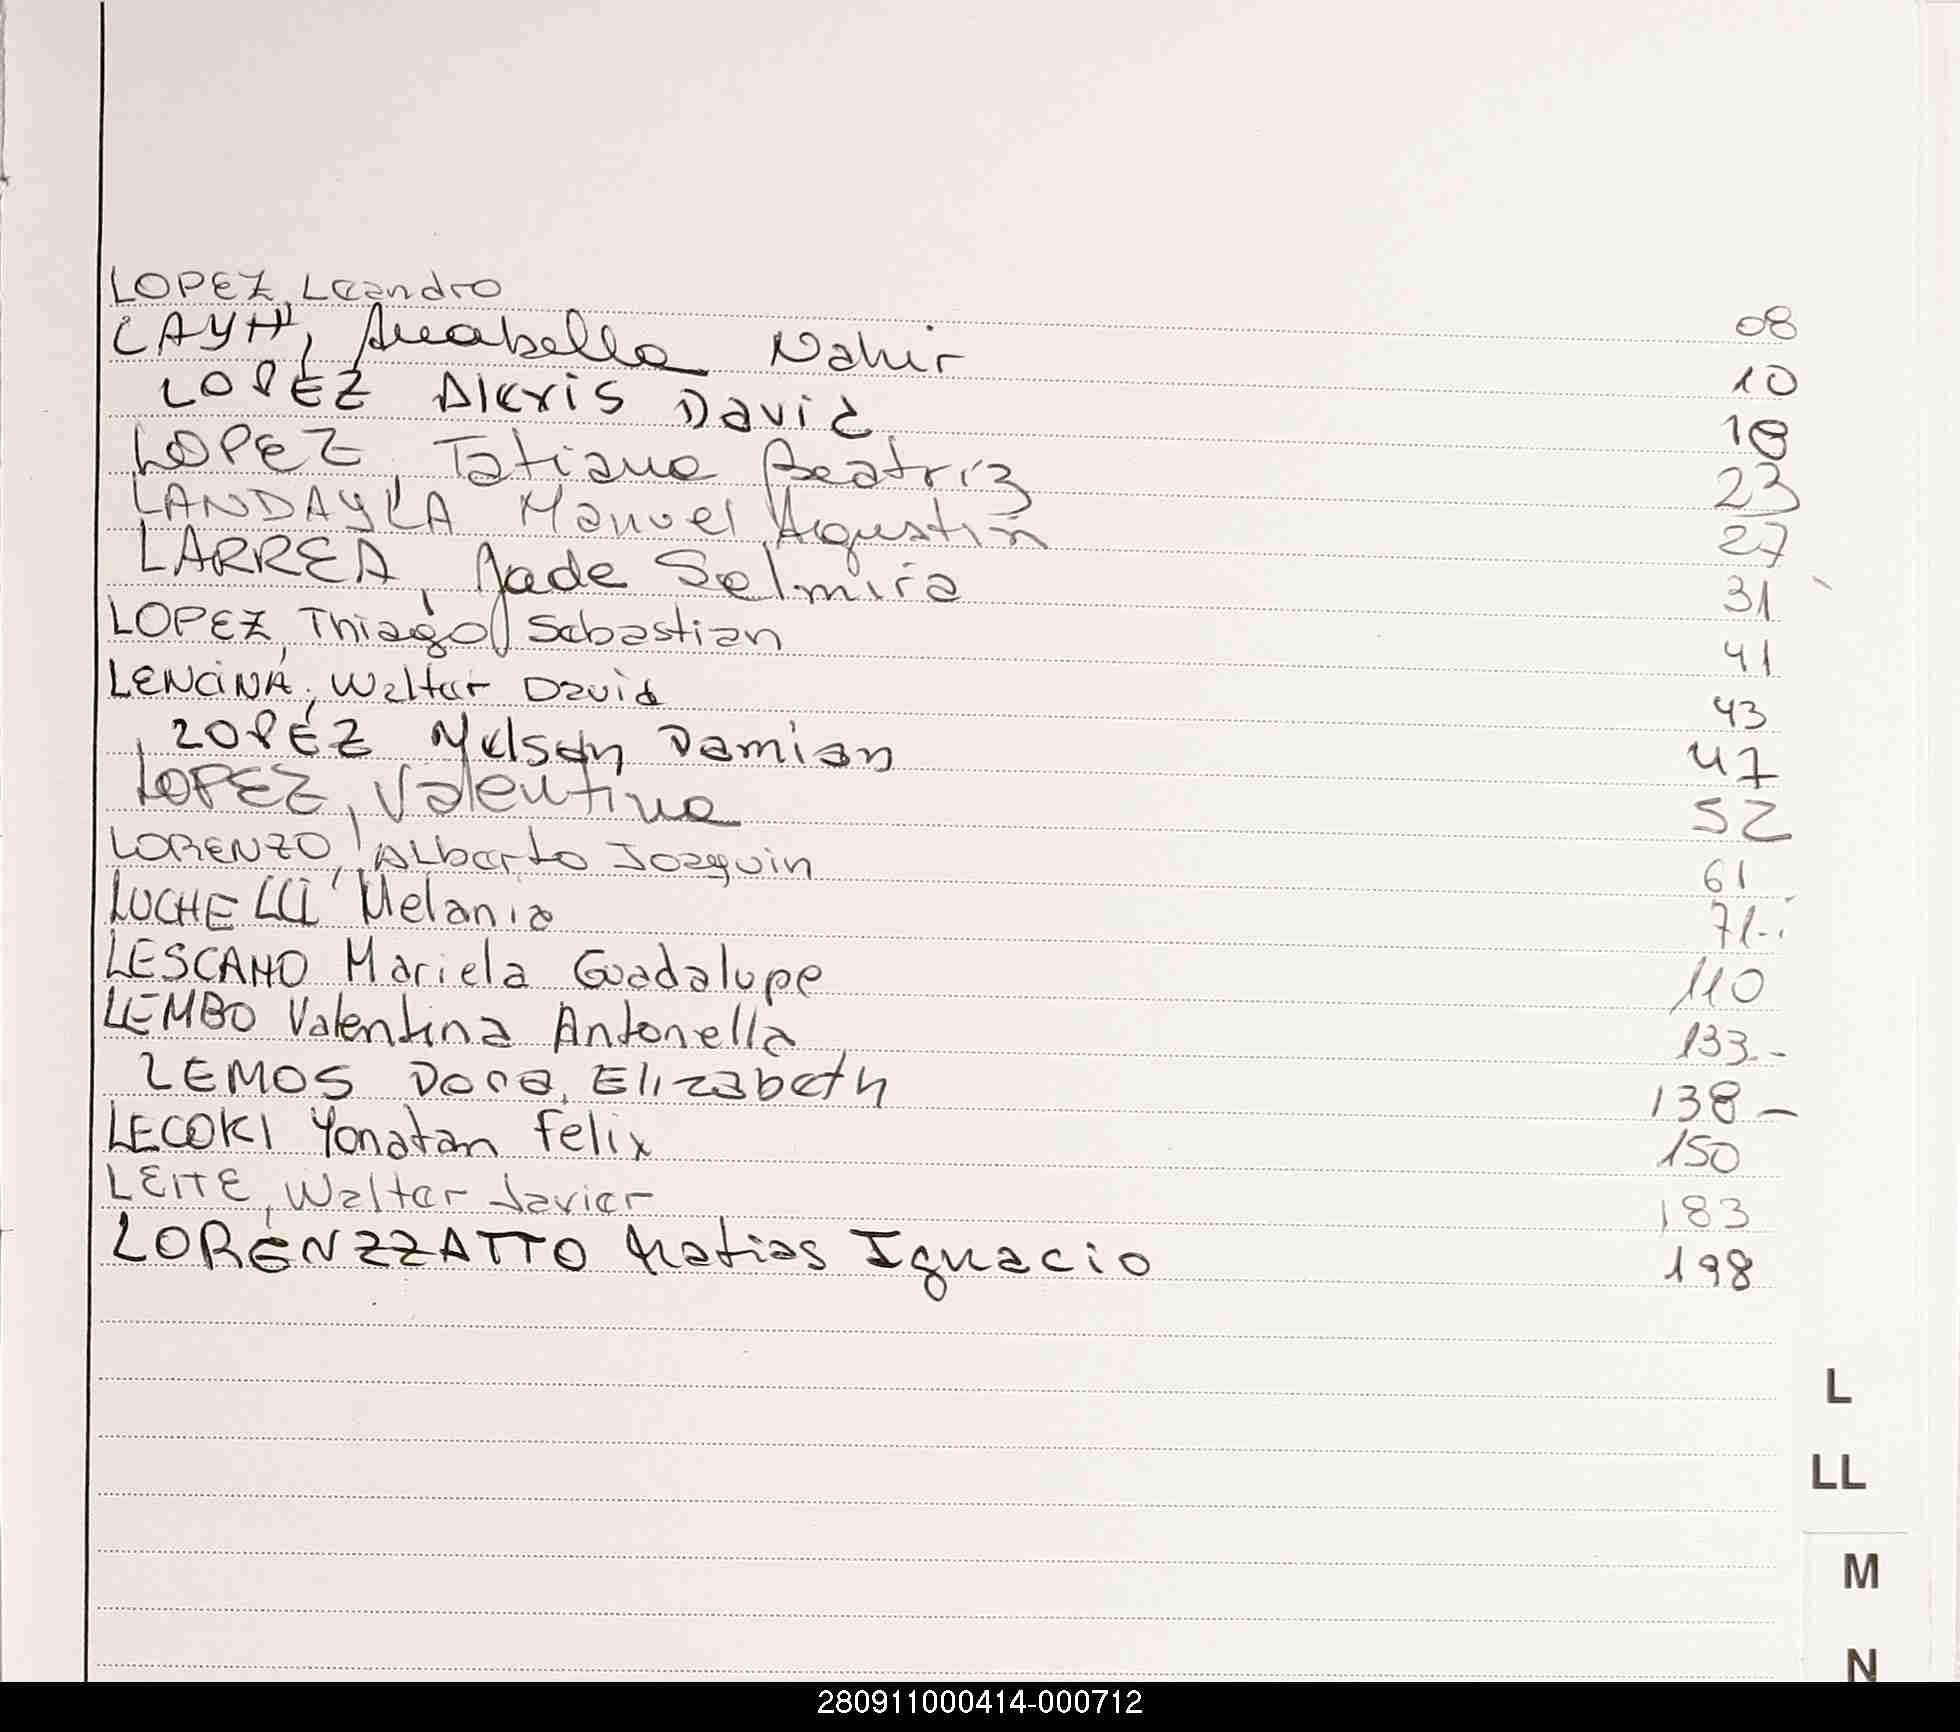 LOPEZ, Leandro 08
LAYH, Anabella Nahir 10
LOPEZ Alexis David 18
LOPEZ, Tatiana Beatriz 23
LANDAYLA Manuel Agustin 27
LARREA, Jade Selmira 31
LOPEZ, Thiago Sebastian 41
LENCINA, Walter David 43
LOPEZ Nelson Damian 47
LOPEZ, Valentina 52
LORENZO, Alberto Joaquin 61
LUCHELLI Melania 71
LESCANO Mariela Guadalupe 110
LEMBO Valentina Antonella 133.-
LEMOS Dora Elizabeth 138-
LECOKI Yonatan Felix 150
LEITE, Walter Javier 183
LORENZZATTO Matias Ignacio 198
L
LL
M
N
280911000414-000712